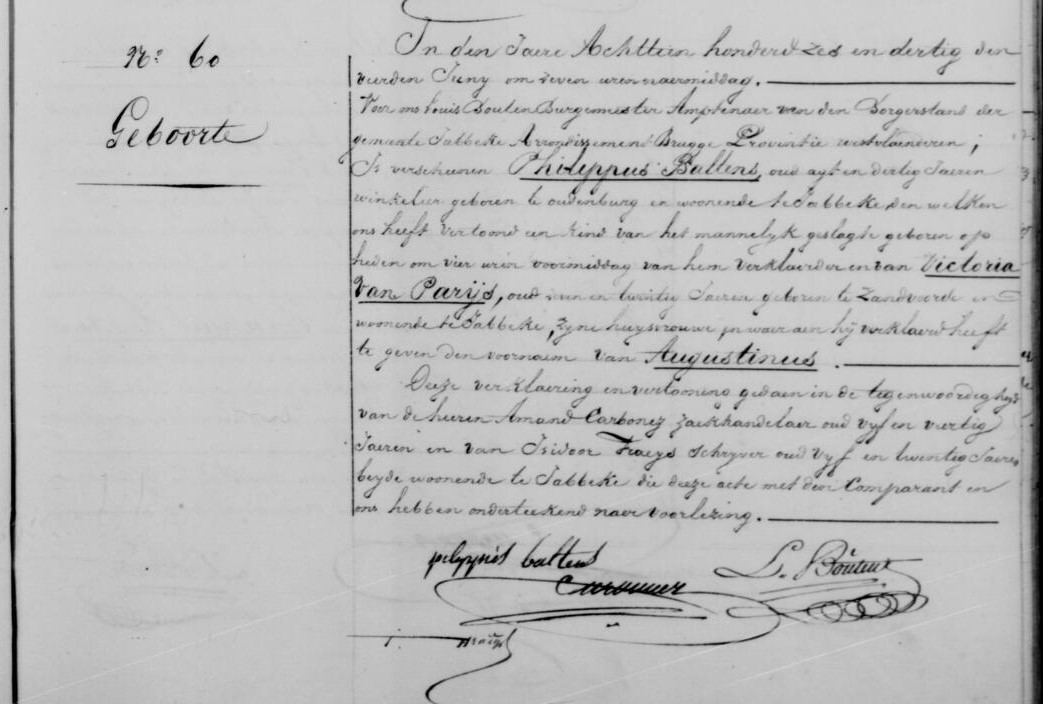 N.º 60
Geboorte
In den Jaere Achttien honderd zes en dertig den
vierden Juny om zeven uren naermiddag.
Voor ons Louis Bouten Burgemeester Amptenaer van den Borgerstand der
gemeente Jabbeke Arrondissement Brugge Provintie westvlaenderen,
Is verscheenen Philippus Baltens, oud agt en dertig Jaeren
winkelier geboren te oudenburg en woonende te Jabbeke, den welken
ons heeft vertoond een kind van het mannelyk geslagte geboren op
heden om vier uren voormiddag van hem verklaerder en van Victoria
Van Parijs, oud en twintig Jaeren geboren te Zandvoorde en
woonende te Jabbeke, zyne huysvrouwe, en waer aen hij verklaerd heeft
te geven den voornaem van Augustinus.
Deeze verklaering en vertooning gedaen in de tegenwoordigheyd
van de heeren Amand Carbonez zaekhandelaer oud vyf en viertig
Jaeren en van Isidoor Fraeys Schryver oud vyf en twintig Jaeren
beyde woonende te Jabbeke die deeze acte met den Comparant en
ons hebben onderteekend naer voorlezing.
pelyppus baltens
L. Bouten